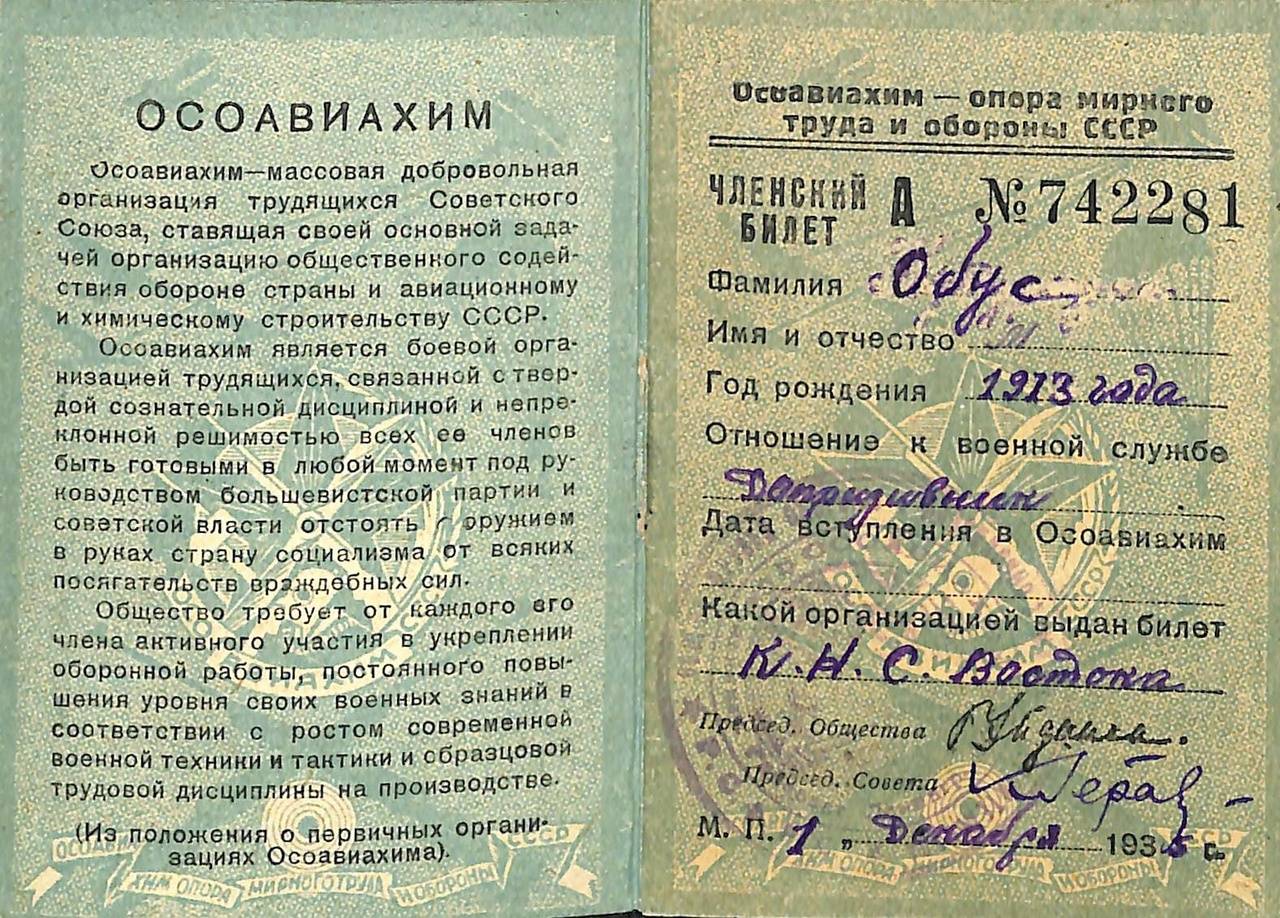 ОСОАВИАХИМ
Осоавиахим—массовая добровольная
организация трудящихся Советского
Союза, ставящая своей основной зада-
чей организацию общественного содей-
ствия обороне страны и авиационному
и химическому строительству СССР.
Осоавиахим является боевой орга-
низацией трудящихся, связанной с твер-
дой сознательной дисциплиной и непре-
клонной решимостью всех ее членов
быть готовыми в любой момент под ру-
ководством большевистской партии и
советской власти отстоять с оружием
в руках страну социализма от всяких
посягательств враждебных сил.
Общество требует от каждого его
члена активного участия в укреплении
оборонной работы, постоянного повы-
шения уровня своих военных знаний в
соответствии с ростом современной
военной техники и тактики и образцовой
трудовой дисциплины на производстве.
(Из положения о первичных органи-
зациях Осоавиахима).
ХИМ ОПОРА МИРНОГО ТРУДА И ОБОРОНЫ СССР
Осоавиахим — опора мирного
труда и обороны СССР
ЧЛЕНСКИЙ БИЛЕТ А № 742281
Фамилия
Имя и отчество
Год рождения 1913 года
Отношение к военной службе
Допризывник
Дата вступления в Осоавиахим
Какой организацией выдан билет
К. Н. С. Востока
Председ. Общества
Председ. Совета
М. П. 1 „ Декабря 1935 г.
ХИМ ОПОРА МИРНОГО ТРУДА И ОБОРОНЫ